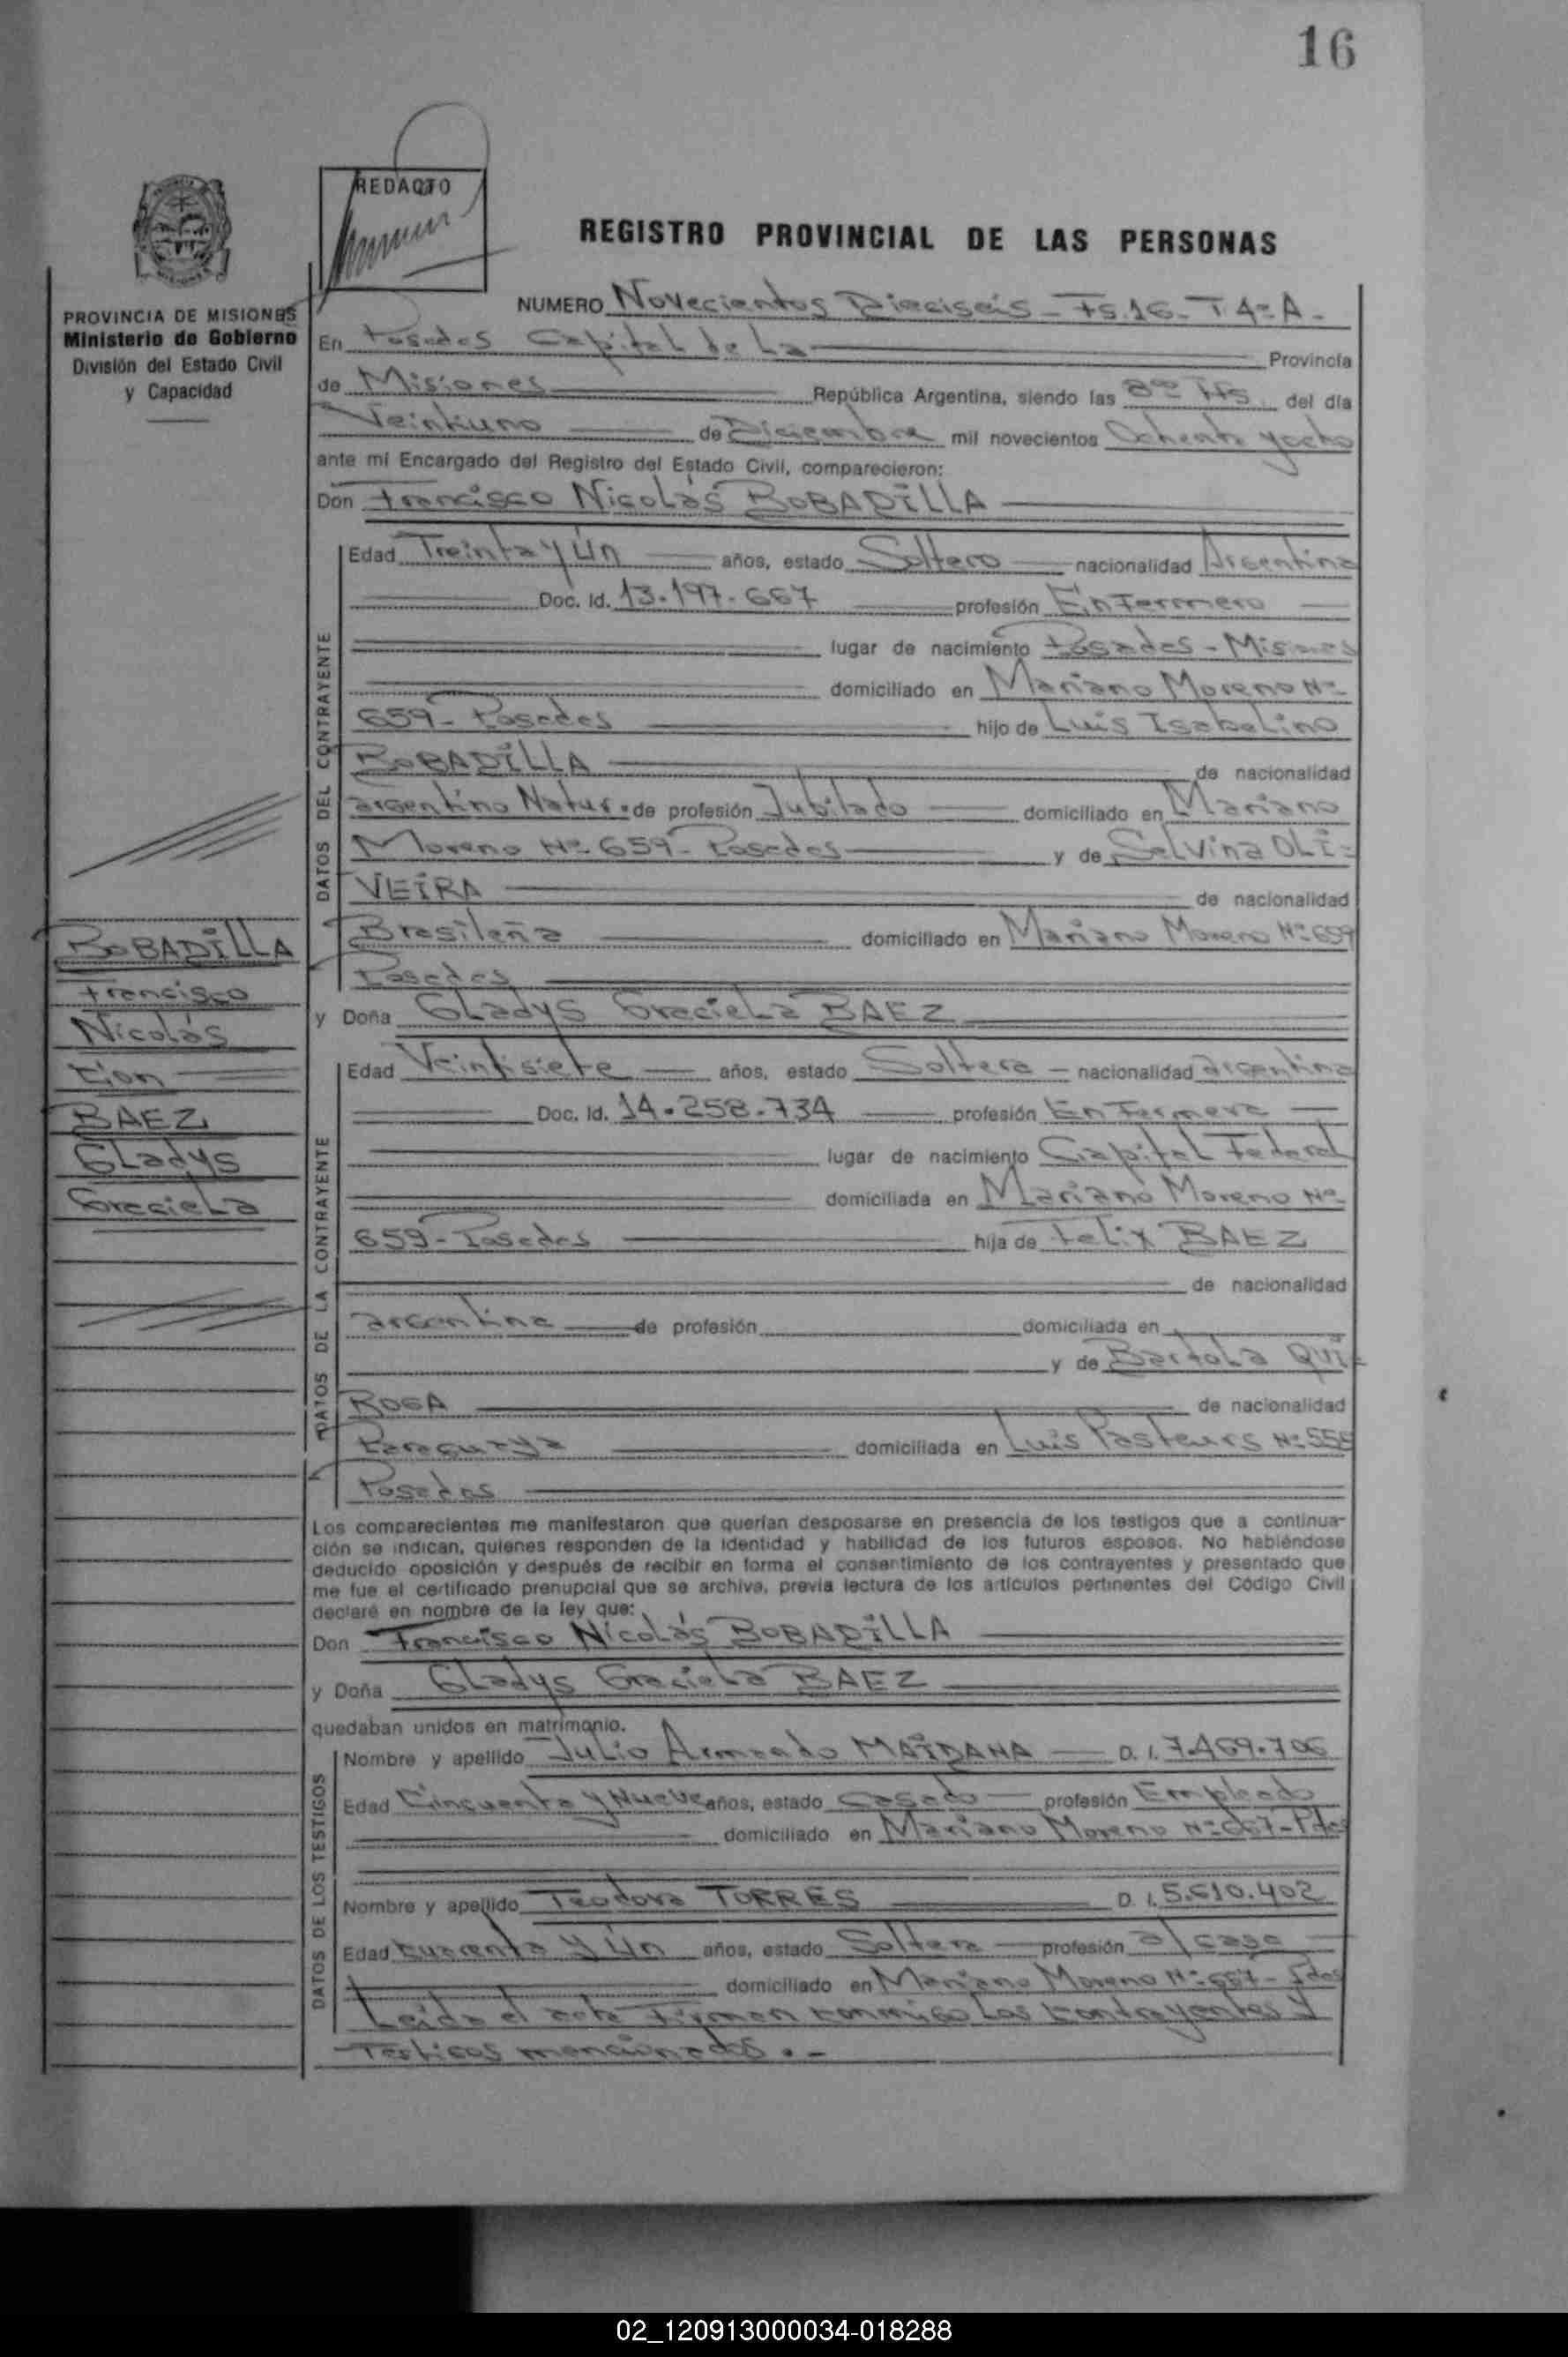 16
REDACTO
REGISTRO PROVINCIAL DE LAS PERSONAS
PROVINCIA DE MISIONES
Ministerio de Gobierno
División del Estado Civil
y Capacidad
NUMERO Novecientos Dieciseis - Fs.16 - T 4º A -
En Posadas Capital de La Provincia
de Misiones República Argentina, siendo las 8 Hs del día
Veintiuno de Diciembre mil novecientos Ochenta y ocho
ante mi Encargado del Registro del Estado Civil, comparecieron:
Don Francisco Nicolás BOBADILLA
DATOS DEL CONTRAYENTE
Edad Treinta y Un años, estado Soltero nacionalidad Argentina
Doc. Id. 13.197.667 profesión Enfermero
lugar de nacimiento Posadas - Misiones
domiciliado en Mariano Moreno Nº
659 - Posadas hijo de Luis Isabelino
BOBADILLA de nacionalidad
argentino Natur. de profesión Jubilado domiciliado en Mariano
Moreno Nº 659 - Posadas y de Selvina OLI-
VEIRA de nacionalidad
Brasileña domiciliado en Mariano Moreno Nº 659
Posadas
BOBADILLA
Francisco
Nicolás
Con
BAEZ
Gladys
Graciela
y Doña Gladys Graciela BAEZ
DATOS DE LA CONTRAYENTE
Edad Veintisiete años, estado Soltera nacionalidad argentina
Doc. Id. 14.258.734 profesión Enfermera
lugar de nacimiento Capital Federal
domiciliada en Mariano Moreno Nº
659 - Posadas hija de Felix BAEZ
de nacionalidad
argentina de profesión domiciliada en
y de Bartola QUI-
ROGA de nacionalidad
Paraguaya domiciliada en Luis Pasteurs Nº
Posadas
Los comparecientes me manifestaron que querían desposarse en presencia de los testigos que a continua-
ción se indican, quienes responden de la identidad y habilidad de los futuros esposos. No habiéndose
deducido oposición y después de recibir en forma el consentimiento de los contrayentes y presentado que
me fue el certificado prenupcial que se archiva, previa lectura de los artículos pertinentes del Código Civil
declaré en nombre de la ley que:
Don Francisco Nicolás BOBADILLA
y Doña Gladys Graciela BAEZ
quedaban unidos en matrimonio.
DATOS DE LOS TESTIGOS
Nombre y apellido Julio Armando MAIDANA D. I. 7.469.706
Edad Cincuenta y Nueve años, estado Casado profesión Empleado
domiciliado en Mariano Moreno Nº 667 - Pdas
Nombre y apellido Teodora TORRES D. I. 5.610.402
Edad Cuarenta y Un años, estado Soltera profesión a/casa
domiciliado en Mariano Moreno Nº - Pdas
Leida el acta Firman conmigo Los contrayentes y
Testigos mencionados . -
02_120913000034-018288